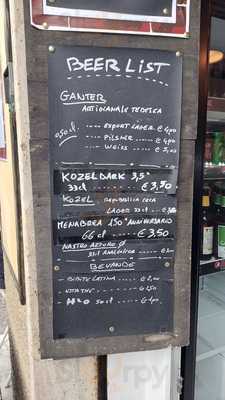 BEER LIST
GANTER
ARTIGIANALE TEDESCA
EXPORT LAGER € 4,00
0,50 cl. PILSNER € 4,00
WEISS €
KOZEL DARK 3,5°
33 cl € 3,50
KOZEL REPUBBLICA CECA
LAGER 33 cl €
MENABREA 150° ANNIVERSARIO
66 cl € 3,50
NASTRO AZZURRO
33 cl ANALCOLICA €
BEVANDE
BIBITE LATTINA €
€
H2O 50 cl €